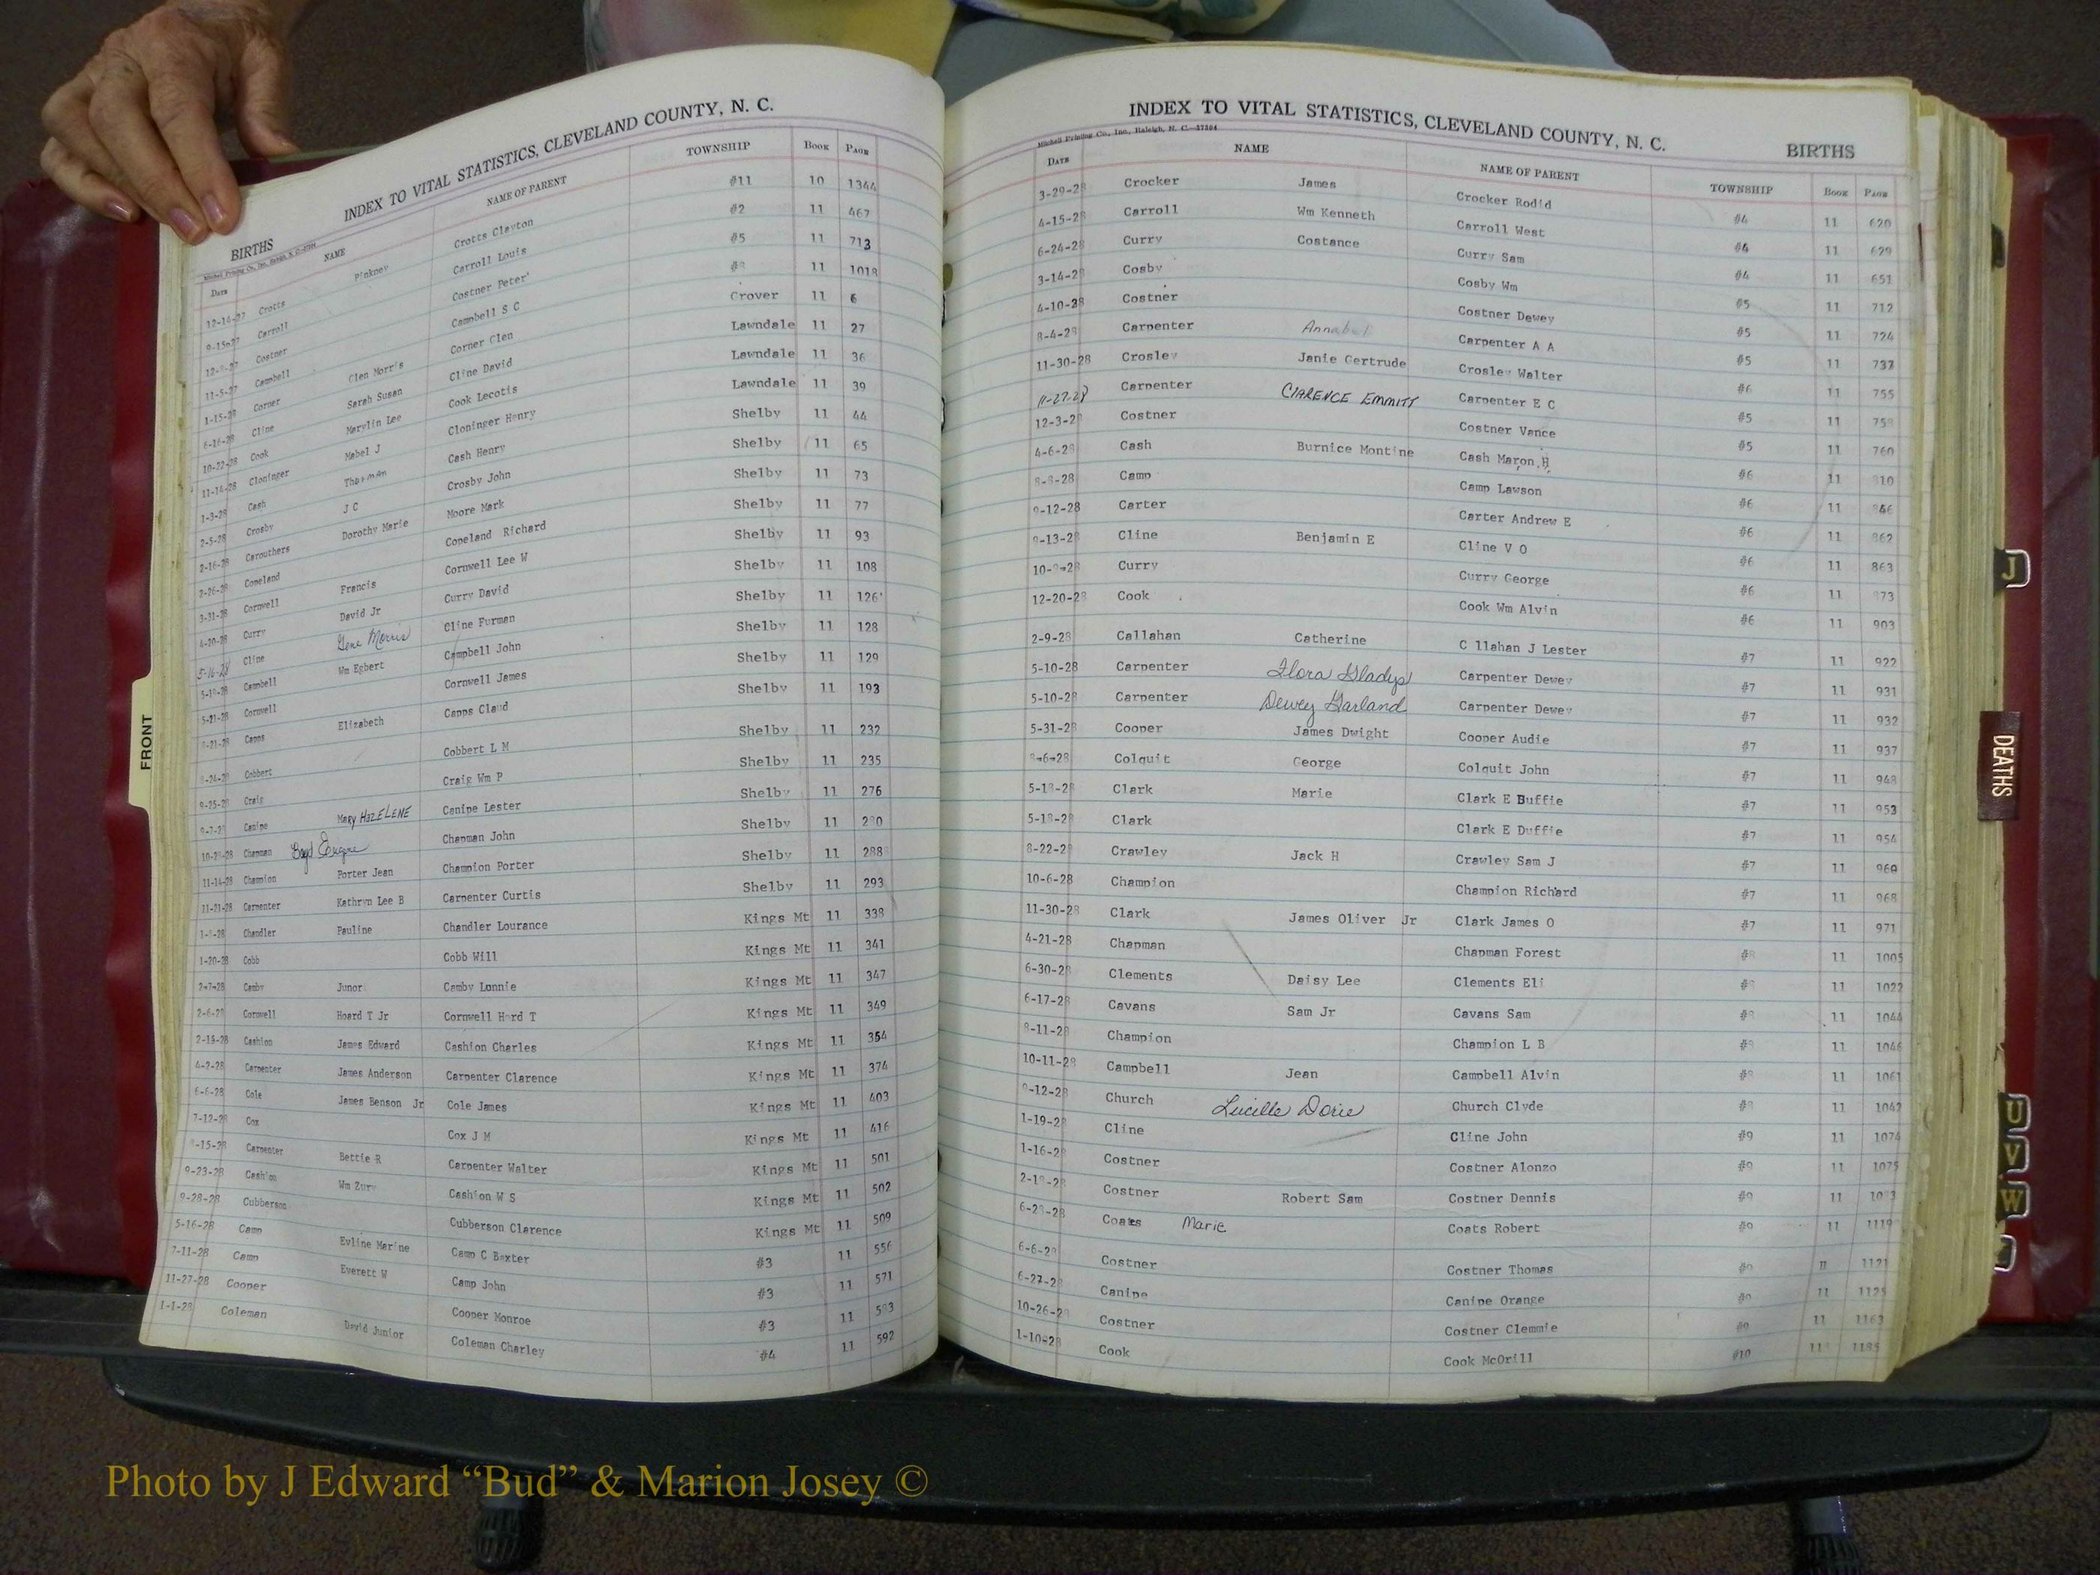 INDEX TO VITAL STATISTICS, CLEVELAND COUNTY, N. C.
BIRTHS
Date NAME NAME OF PARENT TOWNSHIP Book Page
12-14-27 Crotts Pinkney Crotts Clayton #11 10 1344
9-15-27 Carroll Carroll Louis #2 11 467
Costner Costner Peter #5 11 713
11-5-27 Campbell Campbell S C 11 1018
1-15-28 Corner Glen Morris Corner Glen Grover 11 6
6-16-28 Cline Sarah Susan Cline David Lawndale 11 27
10-22-28 Cook Marylin Lee Cook Lecotis Lawndale 11 36
11-14-28 Cloninger Mabel J Cloninger Henry Lawndale 11 39
1-3-28 Cash Cash Henry Shelby 11 44
2-5-28 Crosby J C Crosby John Shelby 11 65
2-16-28 Carouthers Dorothy Marie Moore Mark Shelby 11 73
2-26-28 Copeland Copeland Richard Shelby 11 77
3-31-28 Cornwell Francis Cornwell Lee W Shelby 11 93
4-20-28 Curry David Jr Curry David Shelby 11 108
5-16-28 Cline Gene Morris Cline Furman Shelby 11 126
Campbell Wm Egbert Campbell John Shelby 11 128
5-21-28 Cornwell Cornwell James Shelby 11 129
Capps Elizabeth Capps Claud Shelby 11 193
Cobbert Cobbert L M Shelby 11 232
9-25-28 Craig Craig Wm P Shelby 11 235
Canipe Mary HAZELENE Canipe Lester Shelby 11 276
Chapman Boyd Chapman John Shelby 11
11-14-28 Champion Porter Jean Champion Porter Shelby 11 288
11-21-28 Carpenter Kathryn Lee B Carpenter Curtis Shelby 11 293
Chandler Pauline Chandler Lourance Kings Mt 11 338
1-20-28 Cobb Cobb Will Kings Mt 11 341
2-7-28 Camby Junor Camby Lonnie Kings Mt 11 347
2-6-28 Cornwell Hoard T Jr Cornwell Hord T Kings Mt 11 349
Cashion James Edward Cashion Charles Kings Mt 11 354
4-2-28 Carpenter James Anderson Carpenter Clarence Kings Mt 11 374
6-6-28 Cole James Benson Jr Cole James Kings Mt 11 403
7-12-28 Cox Cox J M Kings Mt 11 416
Carpenter Bettie R Carpenter Walter Kings Mt 11 501
9-23-28 Cashion Wm Zury Cashion W S Kings Mt 11 502
9-28-28 Cubberson Cubberson Clarence Kings Mt 11 509
5-16-28 Camp Evline Marine Camp C Baxter #3 11 556
7-11-28 Camp Everett W Camp John #3 11 571
11-27-28 Cooper Cooper Monroe #3 11 583
1-1-28 Coleman David Junior Coleman Charley #4 11 592
INDEX TO VITAL STATISTICS, CLEVELAND COUNTY, N. C.
BIRTHS
Mitchell Printing Co., Inc., Raleigh, N. C.
Date NAME NAME OF PARENT TOWNSHIP Book Page
3-29-28 Crocker James Crocker Rodid #4 11 620
4-15-28 Carroll Wm Kenneth Carroll West #4 11 629
6-24-28 Curry Costance Curry Sam #4 11 651
3-14-28 Cosby Cosby Wm #5 11 712
4-10-28 Costner Costner Dewey #5 11 724
8-4-28 Carpenter Annabel Carpenter A A #5 11 737
11-30-28 Crosley Janie Gertrude Crosley Walter #6 11 755
11-27-28 Carpenter CLARENCE EMMITT Carpenter E C #5 11 758
12-3-28 Costner Costner Vance #5 11 760
4-6-28 Cash Burnice Montine Cash Maron H #6 11 810
8-8-28 Camp Camp Lawson #6 11 846
9-12-28 Carter Carter Andrew E #6 11 862
9-13-28 Cline Benjamin E Cline V O #6 11 863
Curry Curry George #6 11 873
12-20-28 Cook Cook Wm Alvin #6 11 903
2-9-28 Callahan Catherine C llahan J Lester #7 11 922
5-10-28 Carpenter Flora Gladys Carpenter Dewey #7 11 931
5-10-28 Carpenter Dewey Garland Carpenter Dewey #7 11 932
5-31-28 Cooper James Dwight Cooper Audie #7 11 937
Colquit George Colquit John #7 11 948
5-18-28 Clark Marie Clark E Buffie #7 11 953
5-18-28 Clark Clark E Duffie #7 11 954
8-22-28 Crawley Jack H Crawley Sam J #7 11 960
10-6-28 Champion Champion Richard #7 11 968
11-30-28 Clark James Oliver Jr Clark James O #7 11 971
4-21-28 Chapman Chapman Forest #8 11 1005
6-30-28 Clements Daisy Lee Clements Eli #8 11 1022
6-17-28 Cavans Sam Jr Cavans Sam #8 11 1044
8-11-28 Champion Champion L B #8 11 1046
10-11-28 Campbell Jean Campbell Alvin #8 11 1061
Church Lucille Dorie Church Clyde #8 11 1042
1-19-28 Cline Cline John #9 11 1074
1-16-28 Costner Costner Alonzo #9 11 1075
Costner Robert Sam Costner Dennis #9 11
Coates Marie Coats Robert #9 11 1119
6-6-28 Costner Costner Thomas #9 11 1121
6-27-28 Canipe Canipe Orange #9 11 1125
10-26-28 Costner Costner Clemmie #9 11 1163
1-10-28 Cook Cook McOrill #10 11 1185
FRONT
J
DEATHS
U
V
W
Photo by J Edward “Bud” & Marion Josey ©